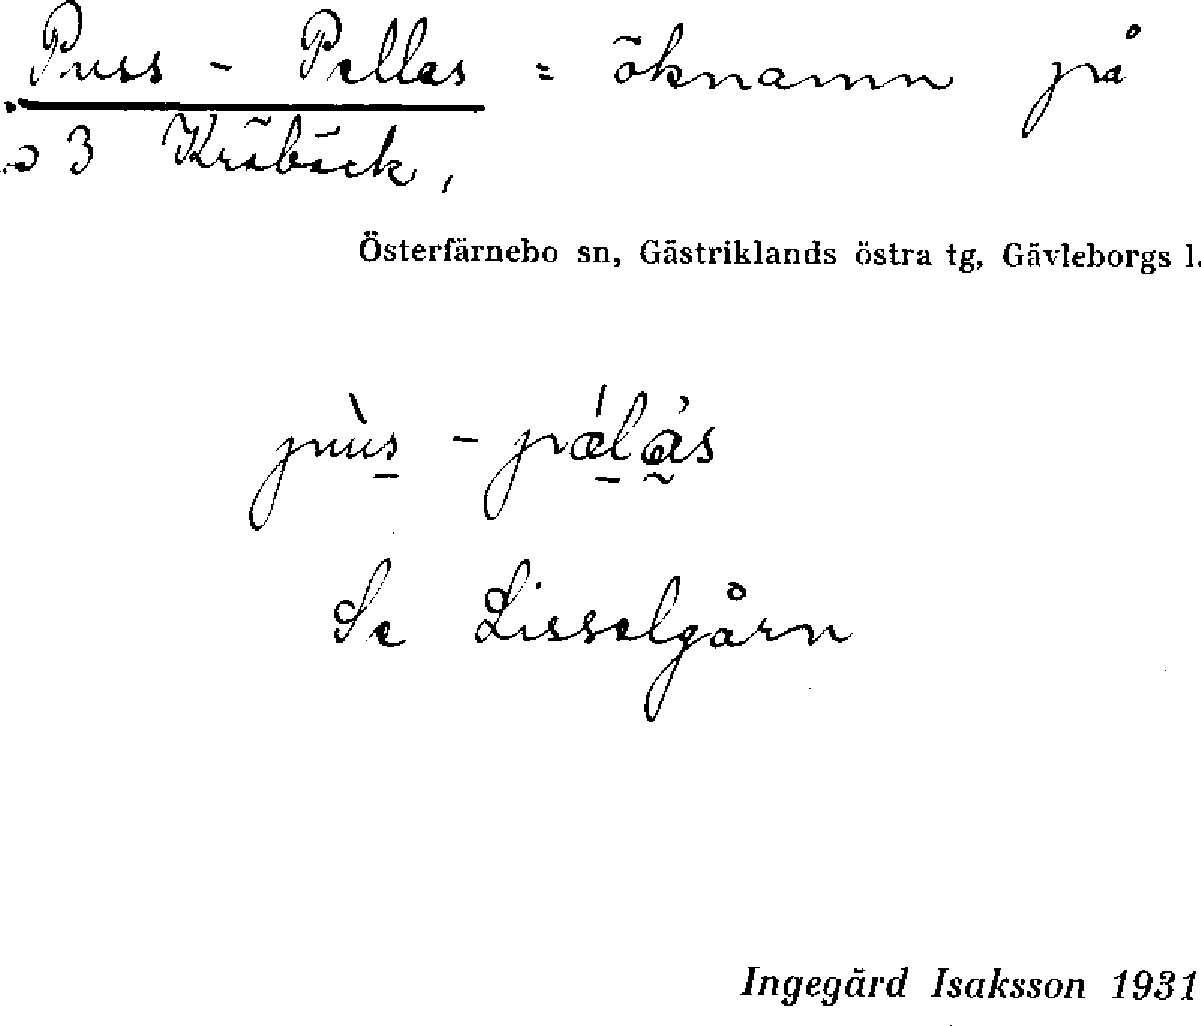 Puss - Pellas = öknamn på
3 Kräbäck,
Österfärnebo sn, Gästriklands östra tg, Gävleborgs l.
Se Lisselgårn
Ingegärd Isaksson 1931